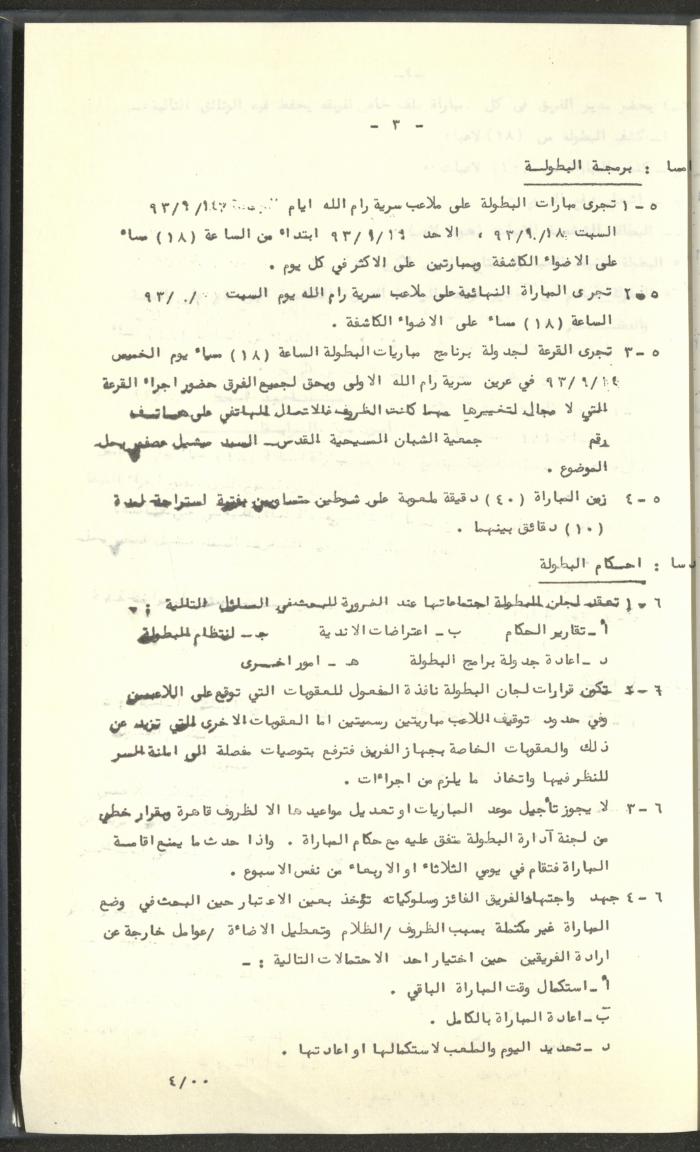 - ٣ -
امسا : برمجة البطولة
٥ - ١ تجرى مبارات البطولة على ملاعب سرية رام الله ايام ٩٣/٩/١٧
السبت ٩٣/٩/١٨ ، الاحد ٩٣/٩/١٩ ابتداء من الساعة (١٨) مساء
على الاضواء الكاشفة ومبارتين على الاكثر في كل يوم .
٥ - ٢ تجرى المباراة النهائية على ملاعب سرية رام الله يوم السبت / / ٩٣
الساعة (١٨) مساء على الاضواء الكاشفة .
٥ - ٣ تجرى القرعة لجدولة برنامج مباريات البطولة الساعة (١٨) مساء يوم الخميس
٩٣/٩/١٤ في عرين سرية رام الله الاولى ويحق لجميع الفرق حضور اجراء القرعة
التي لا مجال لتغييرها مهما كانت الظروف فالاتصال الهاتفي على هاتف
رقم جمعية الشبان المسيحية القدس - السيد ميشيل عصفور بحل
الموضوع .
٥ - ٤ زمن المباراة (٤٠) دقيقة ملعوبة على شوطين متساويين بفترة استراحة لمدة
(١٠) دقائق بينهما .
دسا : احكام البطولة
٦ - ١ تعقد لجان البطولة اجتماعاتها عند الضرورة للبحث في المسائل التالية :
أ - تقارير الحكام ب - اعتراضات الاندية ج - انتظام البطولة
د - اعادة جدولة برامج البطولة هـ - امور اخرى
٦ - ٢ تكون قرارات لجان البطولة نافذة المفعول للعقوبات التي توقع على اللاعبين
وفي حدود توقيف اللاعب مباريتين رسميتين اما العقوبات الاخرى التي تزيد عن
ذلك والعقوبات الخاصة بجهاز الفريق فترفع بتوصيات مفصلة الى امانة السر
للنظر فيها واتخاذ ما يلزم من اجراءات .
٦ - ٣ لا يجوز تأجيل موعد المباريات او تعديل مواعيدها الا لظروف قاهرة وبقرار خطي
من لجنة أدارة البطولة متفق عليه مع حكام المباراة . واذا حدث ما يمنع اقامة
المباراة فتقام في يومي الثلاثاء او الاربعاء من نفس الاسبوع .
٦ - ٤ جهد واجتهاد الفريق الفائز وسلوكياته تؤخذ بعين الاعتبار حين البحث في وضع
المباراة غير مكتملة بسبب الظروف /الظلام وتعطيل الاضاءة /عوامل خارجة عن
ارادة الفريقين حين اختيار احد الاحتمالات التالية : -
أ - استكمال وقت المباراة الباقي .
ب - اعادة المباراة بالكامل .
د - تحديد اليوم والملعب لاستكمالها او اعادتها .
٤/٠٠